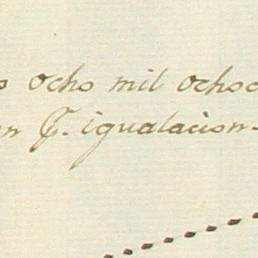 ocho mil ochoc
igualacion